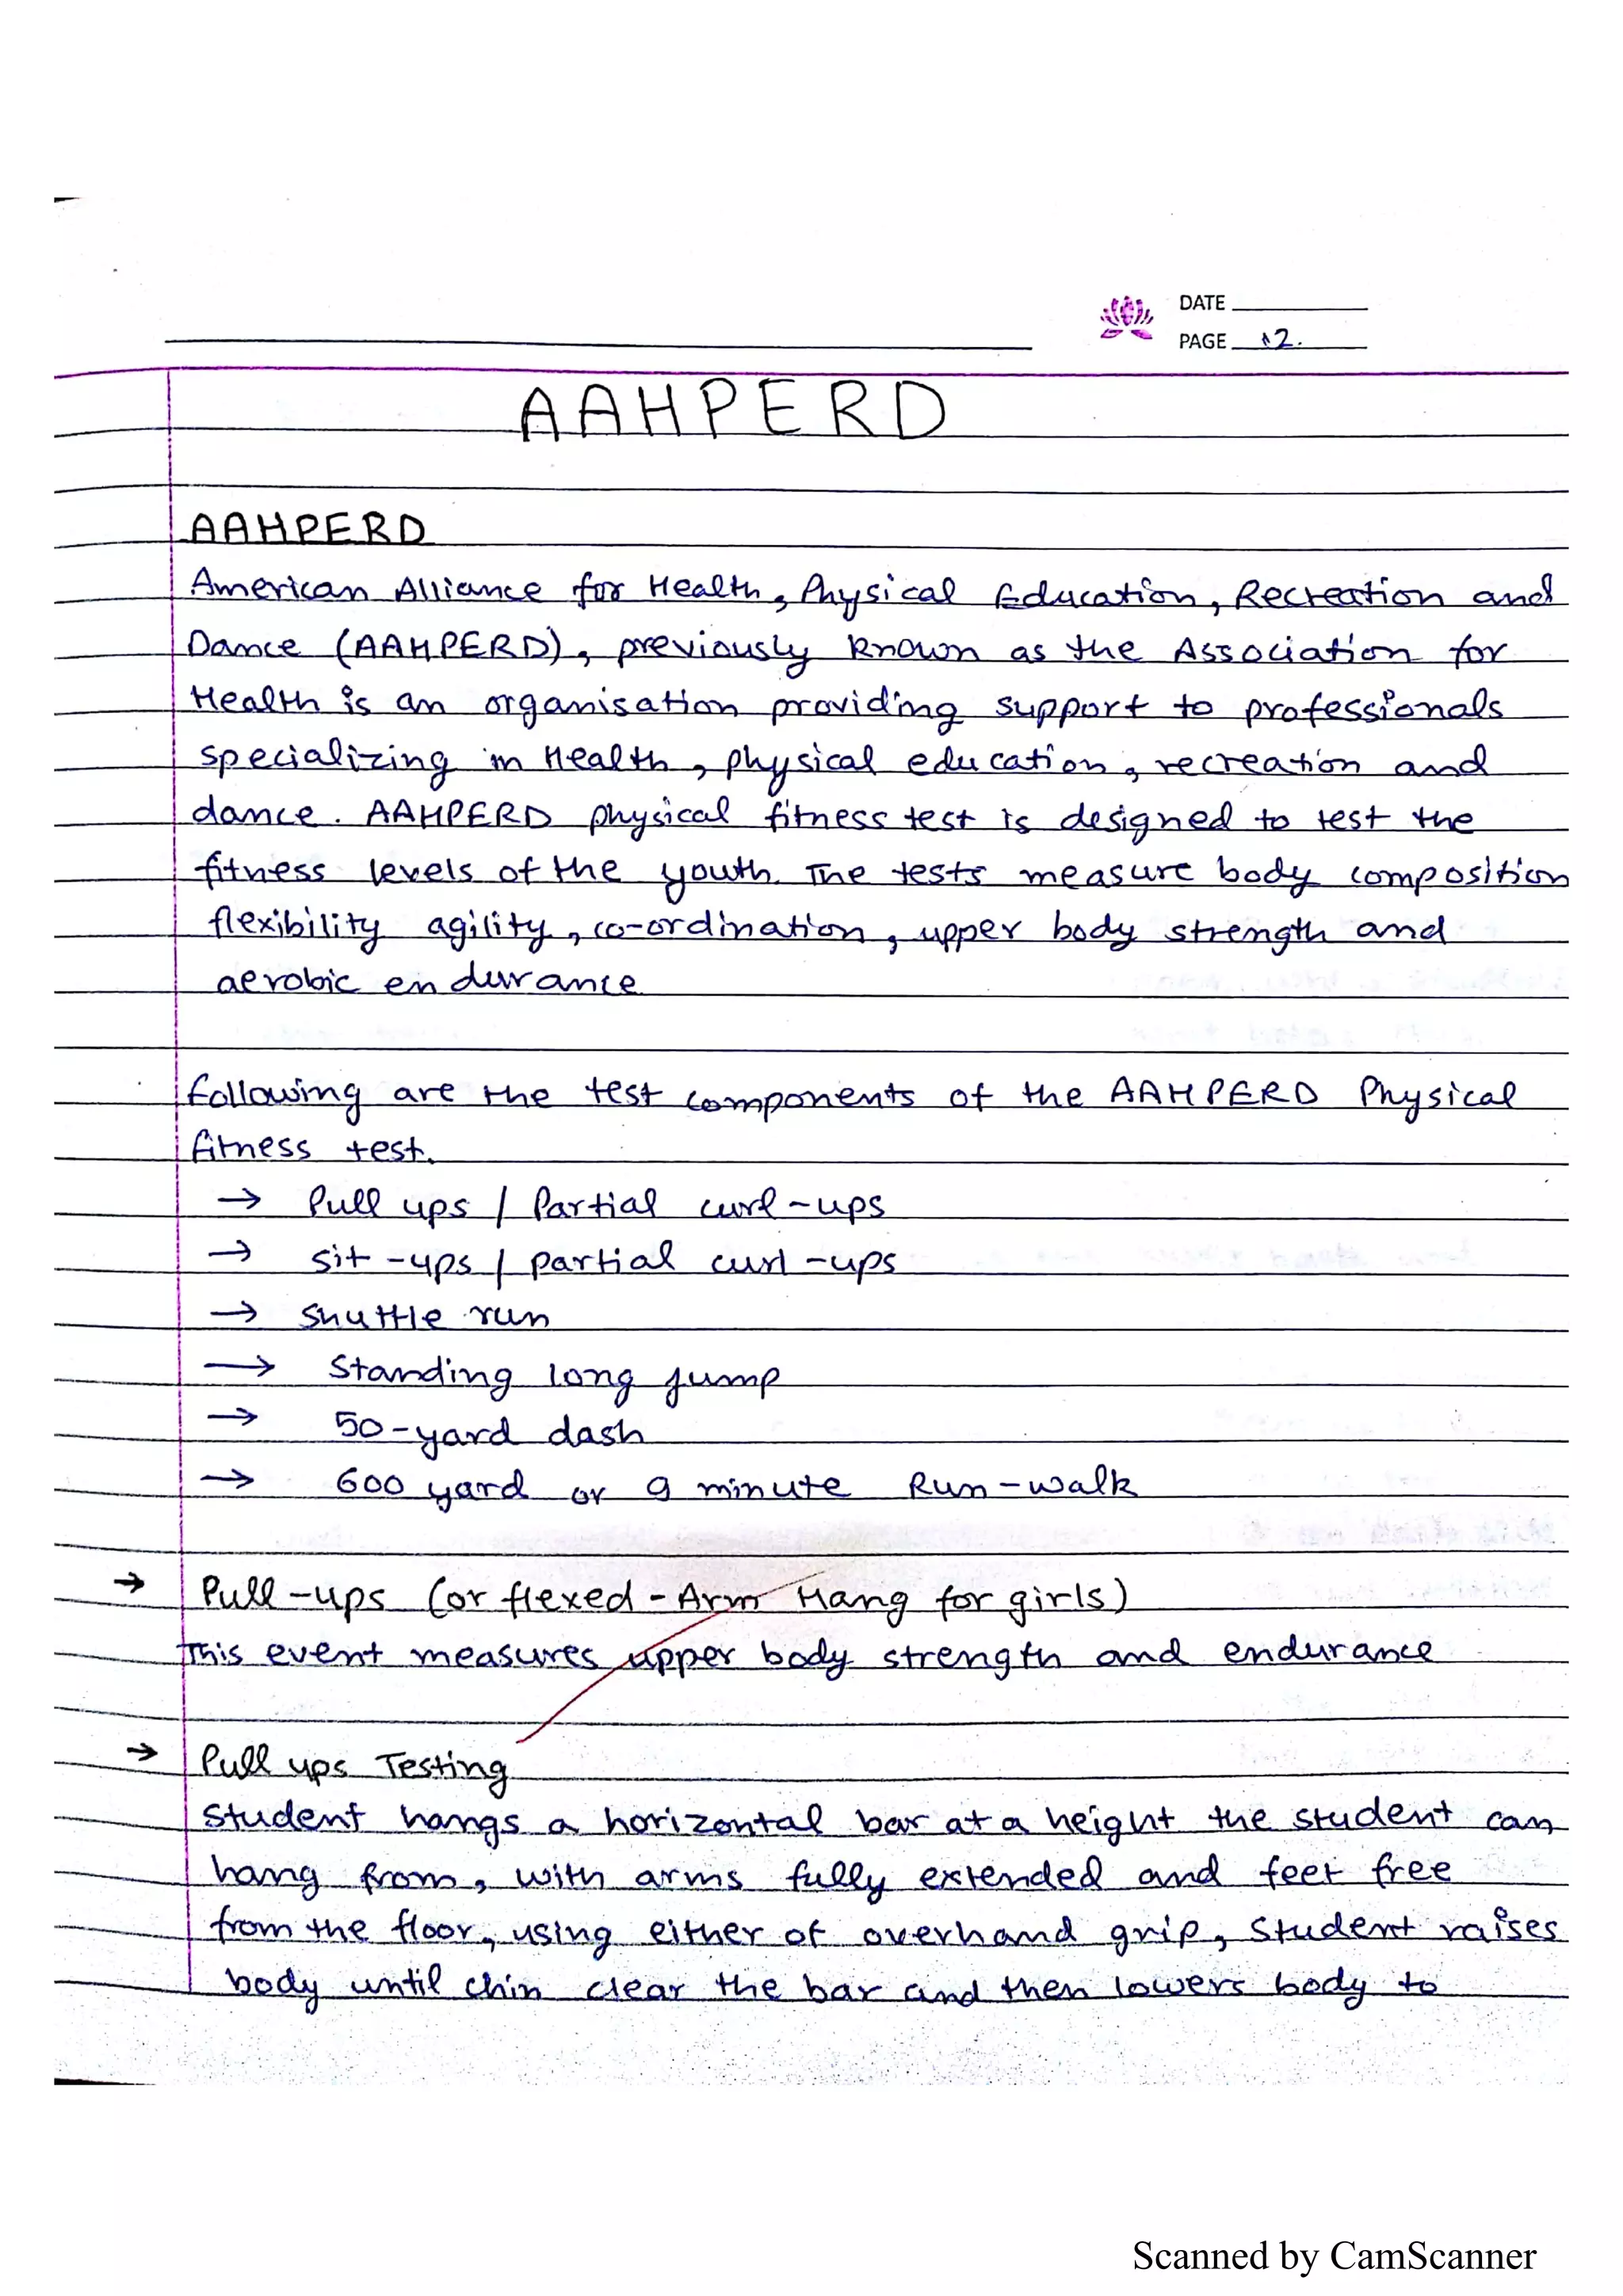 DATE
PAGE 12.
AAHPERD
AAHPERD
American Alliance for Health, Physical Education, Recreation and
Dance (AAHPERD), previously known as the Association for
Health is an organisation providing support to professionals
specializing in Health, physical education, recreation and
dance. AAHPERD physical fitness test is designed to test the
fitness levels of the youth. The tests measure body composition
flexibility agility, co-ordination, upper body strength and
aerobic endurance
following are the test components of the AAHPERD Physical
fitness test.
→ Pull ups / Partial curl-ups
→ sit-ups / partial curl-ups
→ Shuttle run
→ Standing long jump
→ 50-yard dash
→ 600 yard or 9 minute Run-walk
→ Pull-ups (or flexed-Arm Hang for girls)
This event measures upper body strength and endurance
→ Pull ups Testing
Student hangs a horizontal bar at a height the student can
hang from, with arms fully extended and feet free
from the floor, using either of overhand grip, Student raises
body until chin clear the bar and then lowers body to
Scanned by CamScanner